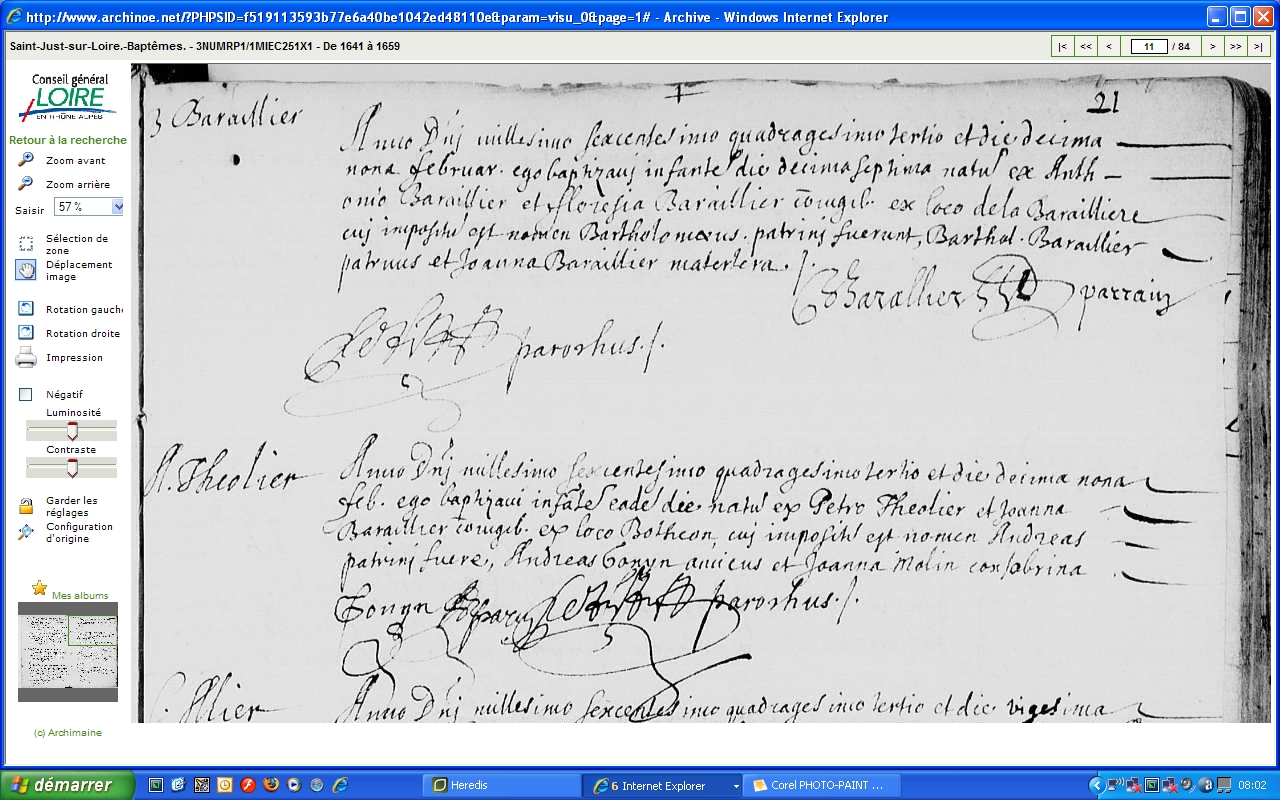 http://www.archinoe.net/?PHPSID=f519113593b77e6a40be1042ed48110e&param=visu_0&page=1# - Archive - Windows Internet Explorer
Saint-Just-sur-Loire.-Baptêmes. - 3NUMRP1/1MIEC251X1 - De 1641 à 1659
|< << < 11 / 84 > >> >|
Conseil général
LOIRE
EN RHÔNE ALPES
Retour à la recherche
Zoom avant
Zoom arrière
Saisir 57 %
Sélection de
zone
Déplacement
image
Rotation gauche
Rotation droite
Impression
Négatif
Luminosité
Contraste
Garder les
réglages
Configuration
d'origine
Mes albums
(c) Archimaine
21
3 Baraillier
Anno Dnj millesimo sexcentesimo quadragesimo tertio et die decima
nona februar. ego baptizavj infante die decima septima natu ex Anth-
onio Baraillier et floresia Baraillier coniugib. ex loco de la Barailliere
cuj impositu est nomen Bartholomæus. patrinj fuerunt, Barthol. Baraillier
patruus et Joanna Baraillier matertera.
Baraillier parrain
parochus
A. Theolier
Anno Dnj millesimo sexcentesimo quadragesimo tertio et die decima nona
feb. ego baptizavi infāte eade die natu ex Petro Theolier et Joanna
Baraillier coniugib. ex loco Botheon, cuj impositu est nomen Andreas
patrinj fuere, Andreas Gonyn amicus et Joanna Molin consobrina
Gonyn parochus
Allier
Anno Dnj millesimo sexcentesimo quadragesimo tertio et die vigesima
démarrer
Heredis
6 Internet Explorer
Corel PHOTO-PAINT ...
08:02